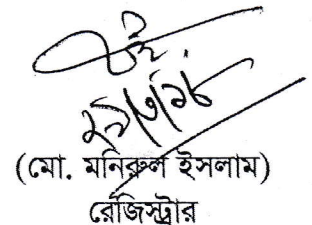 ২৯/৩/১৮
(মো. মনিরুল ইসলাম)
রেজিস্ট্রার